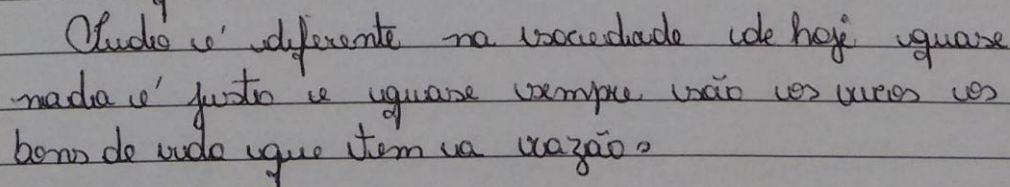 Tudo é diferente na sociedade de hoje quase
nada é justo e quase sempre são os ricos os
bons de vida que tem a razão.